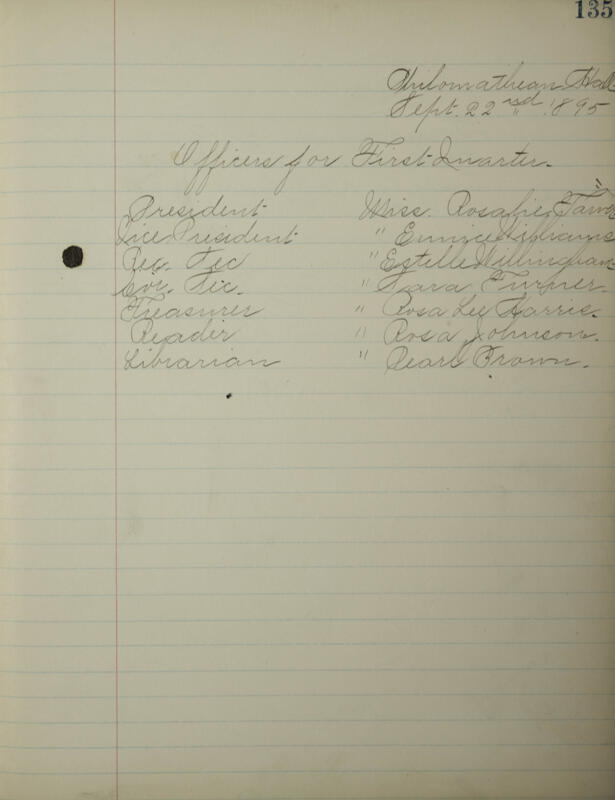 135
Philomathean Hall
Sept. 22nd 1895
Officers for First Quarter.
President Miss. Rosalie
Vice President " Eunice Williams
Rec. Sec " Estelle Willingham
Cor. Sec. " Turner.
Treasurer " Rosa Lee Harris.
Reader " Rosa Johnson.
Librarian " Pearl Brown.